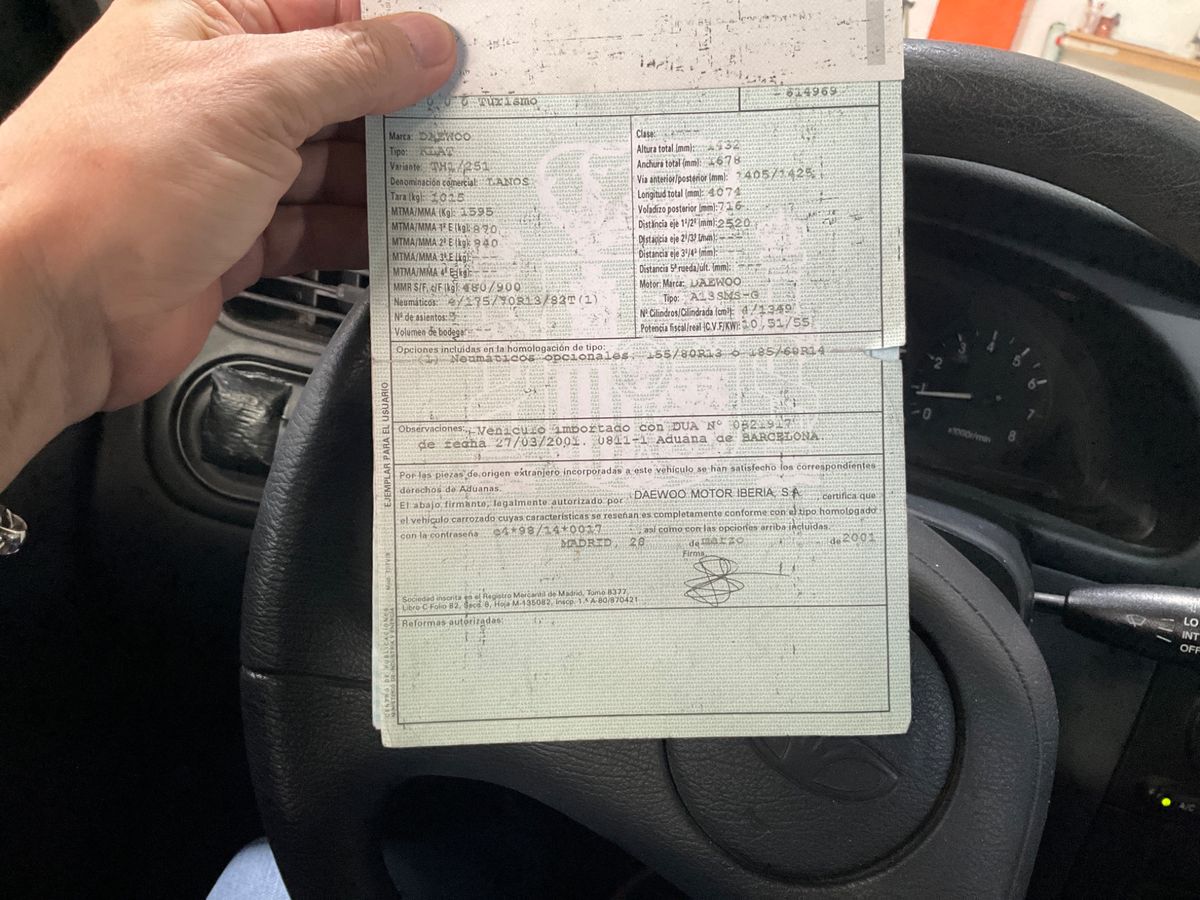 Turismo
614969
Marca: DAEWOO
Tipo: KLAT
Variante: TH1/251
Denominación comercial: LANOS
Tara (kg): 1015
MTMA/MMA (Kg): 1595
MTMA/MMA 1º E (kg): 870
MTMA/MMA 2º E (kg): 840
MTMA/MMA 3º E (kg): ---
MTMA/MMA 4º E (kg): ---
MMR S/F, c/F (kg): 480/900
Neumáticos: 4/175/70R13/82T(1)
Nº de asientos: 5
Volumen de bodega: ---
Clase: ----
Altura total (mm): 1432
Anchura total (mm): 1678
Vía anterior/posterior (mm): 1405/1425
Longitud total (mm): 4074
Voladizo posterior (mm): 716
Distáncia eje 1º/2º (mm): 2520
Distancia eje 2º/3º (mm): ---
Distancia eje 3º/4º (mm): ---
Distancia 5ª rueda/ult. (mm): ---
Motor: Marca: DAEWOO
Tipo: A13SMS-G
Nº Cilindros/Cilindrada (cm³): 4/1349
Potencia fiscal/real (C.V.F/KW): 10,51/55
Opciones incluidas en la homologación de tipo:
(1) Neumáticos opcionales. 155/80R13 ó 185/60R14
Observaciones: Vehículo importado con DUA Nº 0821917
de fecha 27/03/2001. 0811-1 Aduana de BARCELONA
Por las piezas de origen extranjero incorporadas a este vehículo se han satisfecho los correspondientes
derechos de Aduanas.
El abajo firmante, legalmente autorizado por DAEWOO MOTOR IBERIA, S.A. certifica que
el vehículo carrozado cuyas características se reseñan es completamente conforme con el tipo homologado
con la contraseña e4*98/14*0017 , así como con las opciones arriba incluidas.
MADRID, 28 de marzo de 2001
Firma,
Sociedad inscrita en el Registro Mercantil de Madrid, Tomo 8377,
Libro C Folio 82, Secc. 8, Hoja M-135082, Inscp. 1.ª A-80/870421
Reformas autorizadas:
EJEMPLAR PARA EL USUARIO
CENTRO DE PUBLICACIONES
0
1
2
3
4
5
6
7
8
x1000r/min
LO
INT
OFF
A/C